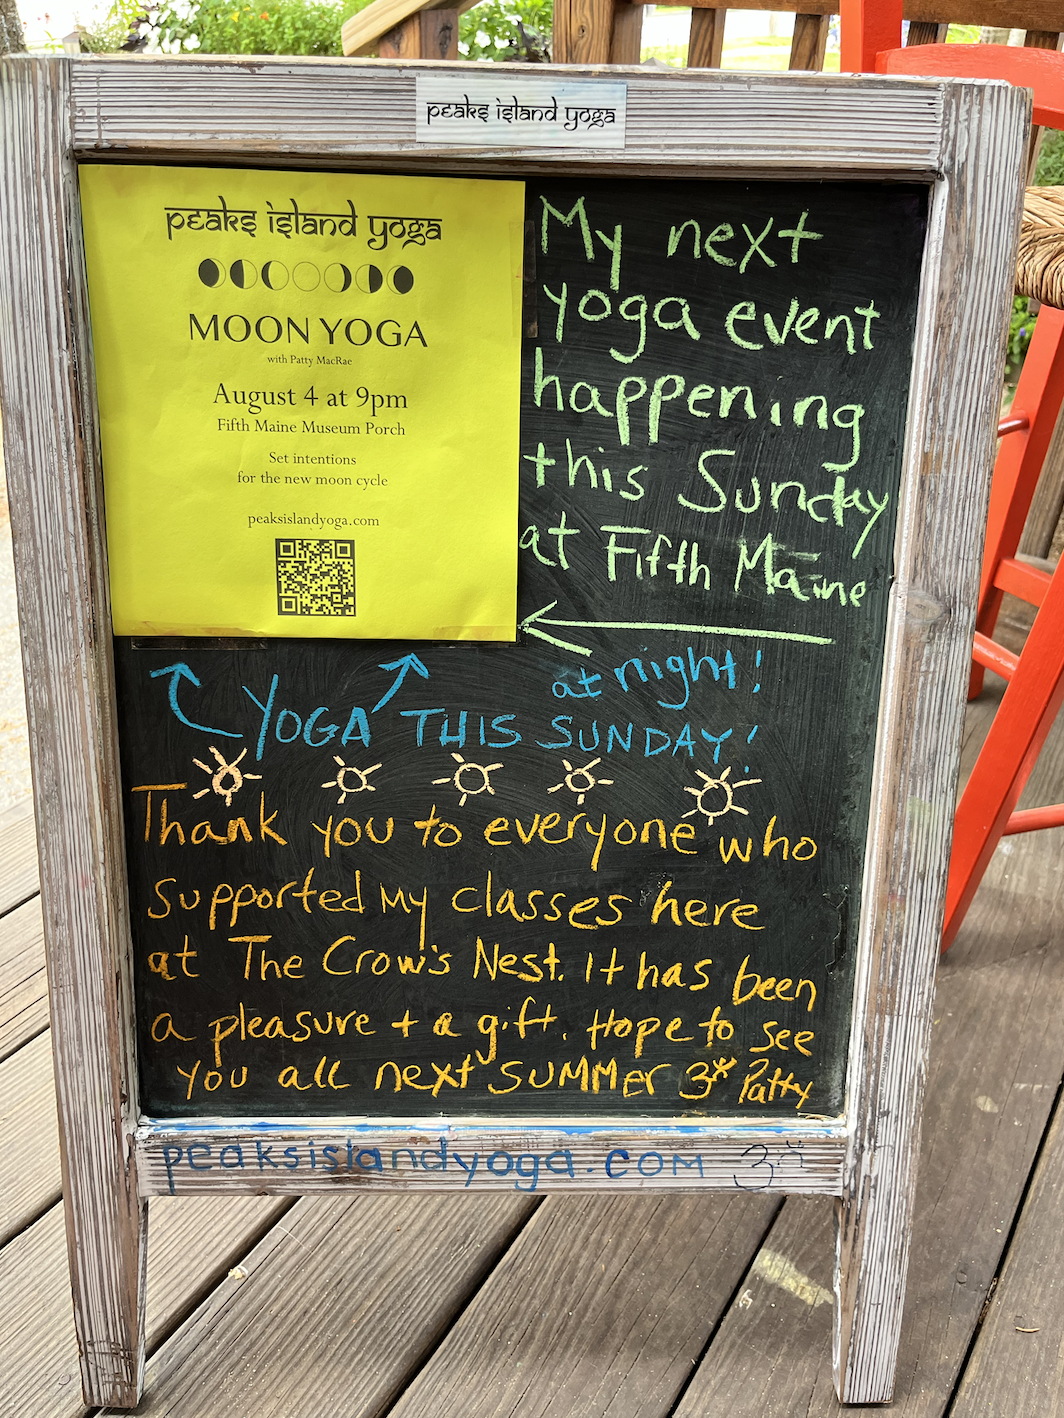 peaks island yoga
peaks island yoga
MOON YOGA
with Patty MacRae
August 4 at 9pm
Fifth Maine Museum Porch
Set intentions
for the new moon cycle
peaksislandyoga.com
My next
yoga event
happening
this Sunday
at Fifth Maine
at night!
YOGA THIS SUNDAY!
Thank you to everyone who
supported my classes here
at The Crow's Nest. It has been
a pleasure + a gift. Hope to see
you all next SUMMER Patty
peaksislandyoga.com